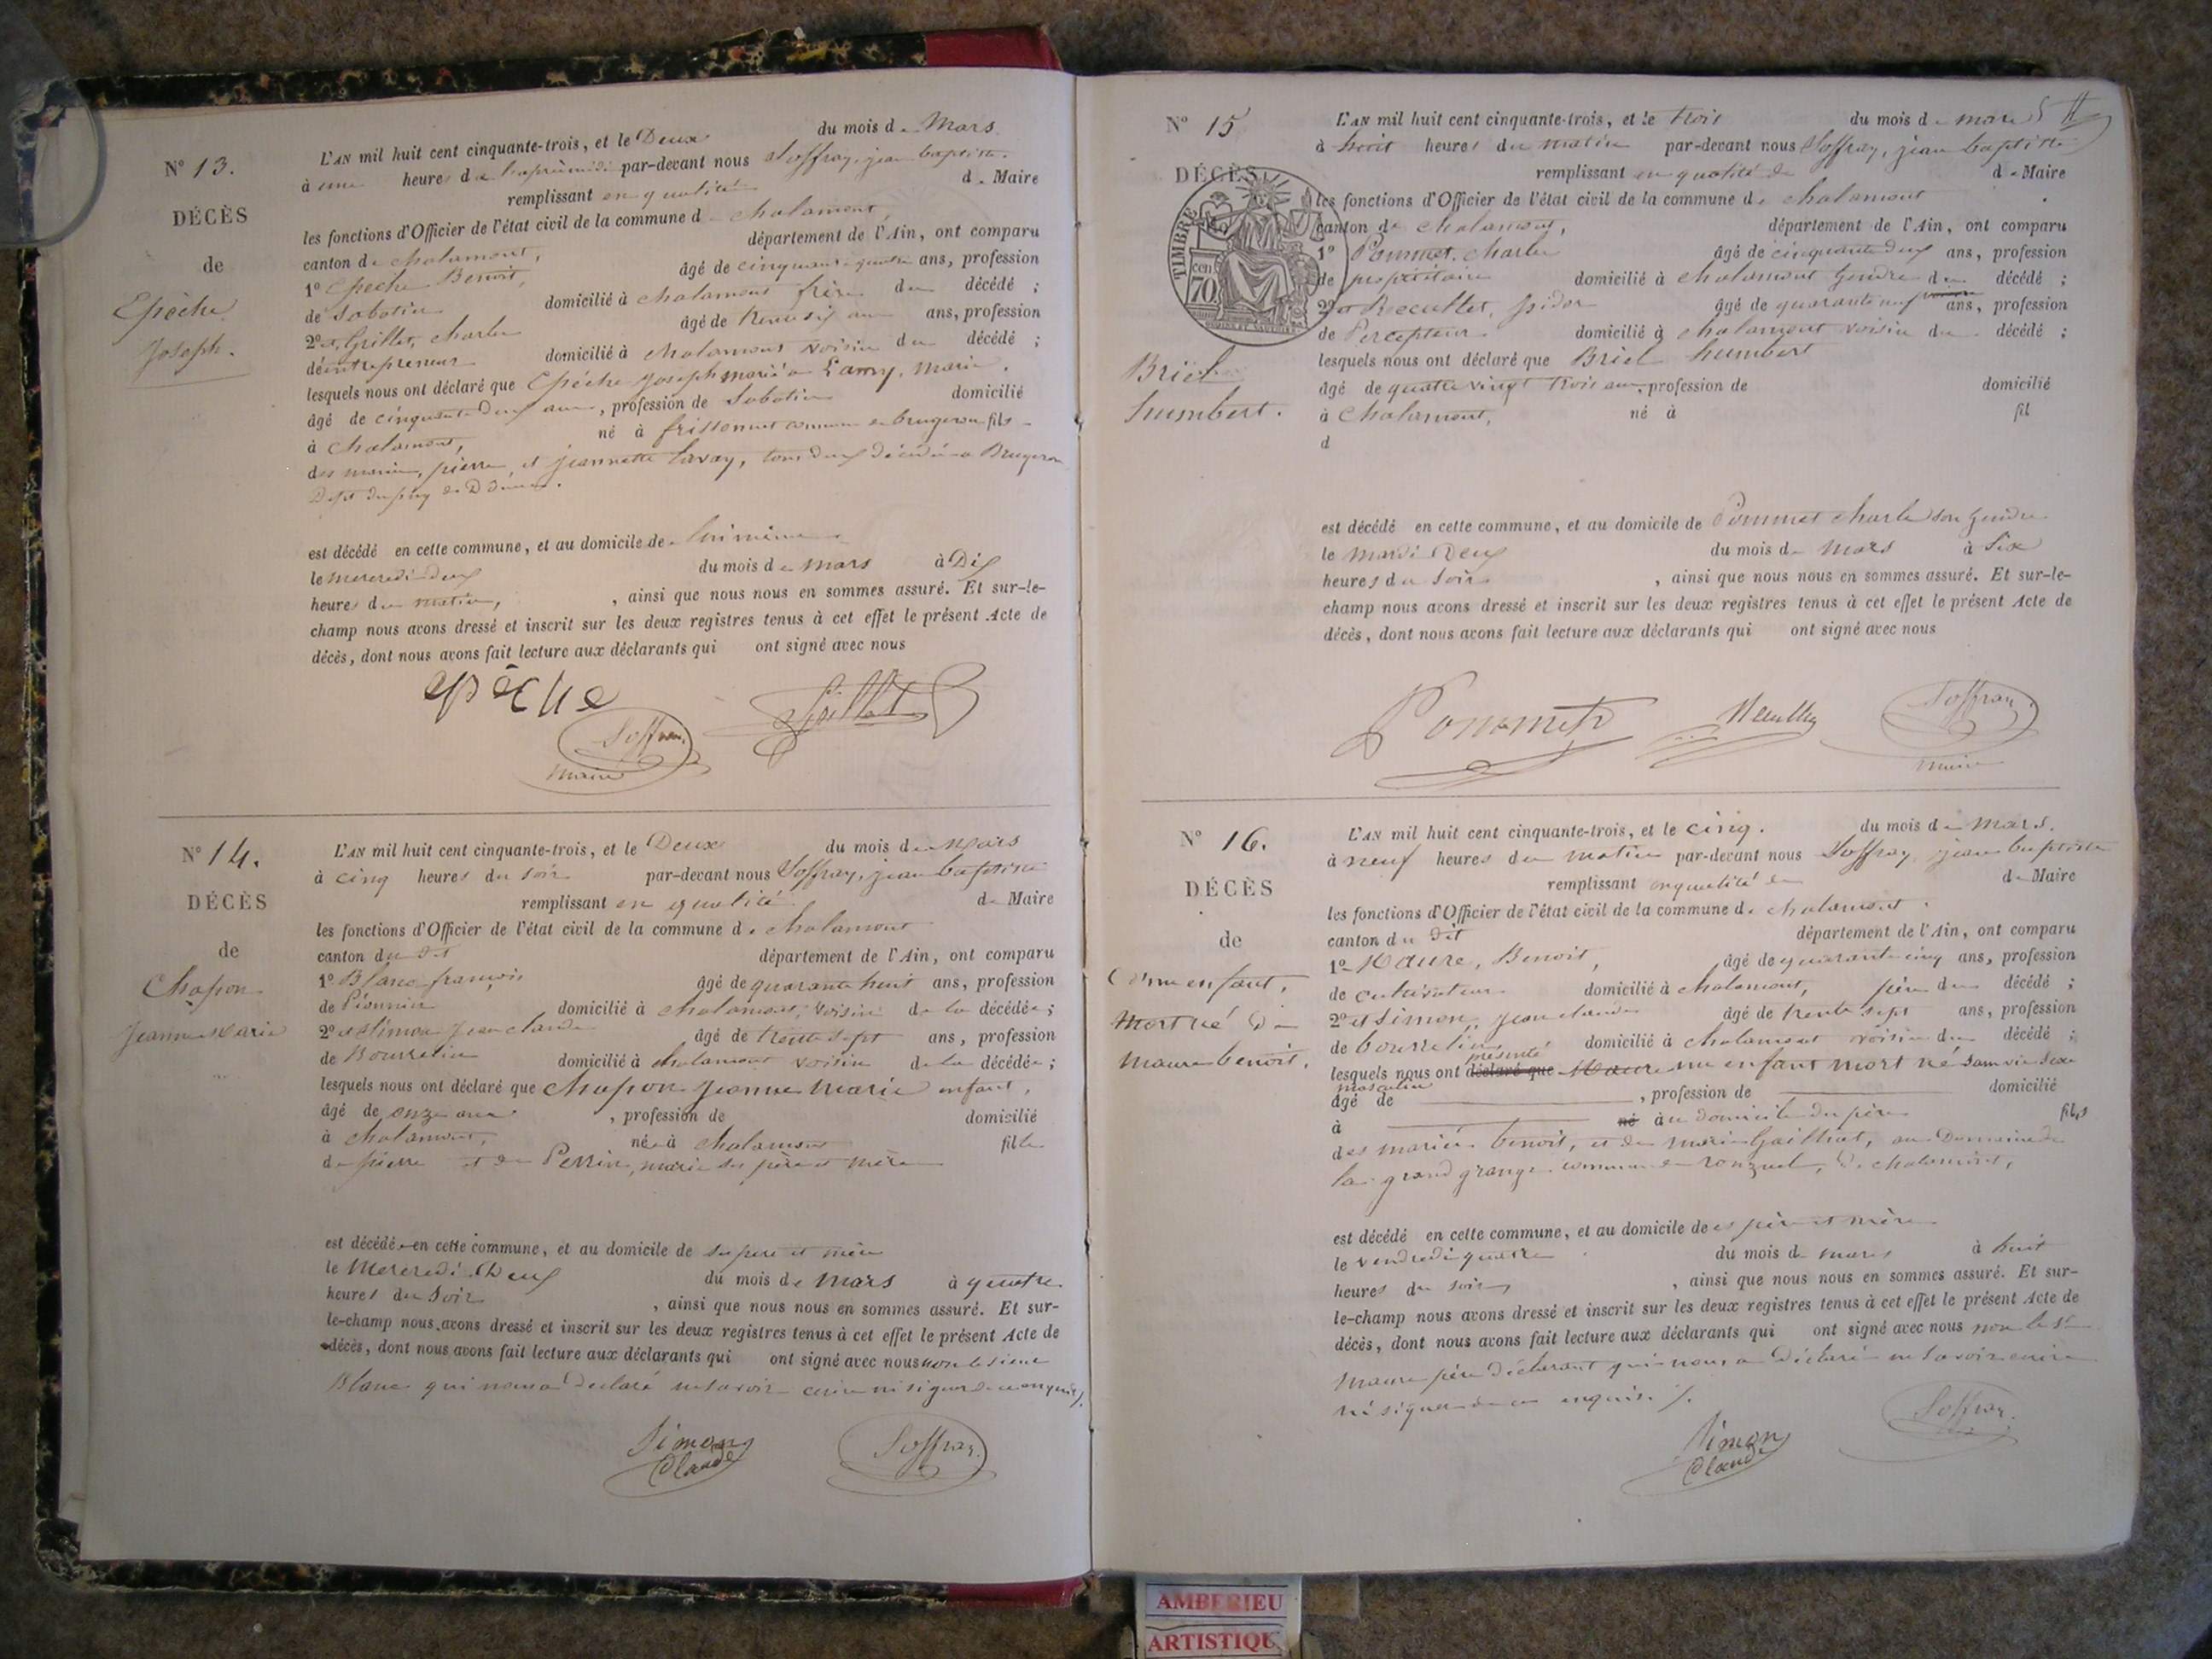 N° 13.
DÉCÈS
de
Epèche
Joseph.
L'AN mil huit cent cinquante-trois, et le Deux du mois de Mars
à une heures de par-devant nous Soffray, jean baptiste.
remplissant en qualité de Maire
les fonctions d'Officier de l'état civil de la commune de chalamont,
canton de chalamont, département de l'Ain, ont comparu
1° Epeche Benoit, âgé de cinquante quatre ans, profession
de Sabotier domicilié à chalamont frère du décédé ;
2° et Grillet, charles âgé de trente six ans ans, profession
de entrepreneur domicilié à chalamont voisin du décédé ;
lesquels nous ont déclaré que Epéche joseph marié à Lamy, Marie.
âgé de cinquante deux ans, profession de Sabotier domicilié
à Chalamont, né à commune de brugeron fils
des mariés, pierre et jeannette lavay, tous deux décédés à Brugeron
Dept du puy de Dôme.
est décédé en cette commune, et au domicile de lui même
le mercredi deux du mois de mars à Dix
heures du matin, , ainsi que nous nous en sommes assuré. Et sur-le-
champ nous avons dressé et inscrit sur les deux registres tenus à cet effet le présent Acte de
décès, dont nous avons fait lecture aux déclarants qui ont signé avec nous
epêche
Grillet
Soffray
maire
N° 14.
DÉCÈS
de
Chapon
Jeanne Marie
L'AN mil huit cent cinquante-trois, et le Deux du mois de Mars
à cinq heures du soir par-devant nous Soffray, jean baptiste
remplissant en qualité de Maire
les fonctions d'Officier de l'état civil de la commune de chalamont
canton du dit département de l'Ain, ont comparu
1° Blanc françois âgé de quarante huit ans, profession
de Pionnier domicilié à chalamont, voisin de la décédée ;
2° et Simon Jean claude âgé de trente sept ans, profession
de Bourrelier domicilié à chalamont voisin de la décédée ;
lesquels nous ont déclaré que Chapon jeanne Marie enfant,
âgé de onze ans , profession de domicilié
à chalamont, née à chalamont fille
de pierre et de Perrin, marie ses père et mère
est décédée en cette commune, et au domicile de ses père et mère
le Mercredi Deux du mois de Mars à quatre
heures du Soir , ainsi que nous nous en sommes assuré. Et sur-
le-champ nous avons dressé et inscrit sur les deux registres tenus à cet effet le présent Acte de
décès, dont nous avons fait lecture aux déclarants qui ont signé avec nous non le sieur
Blanc qui nous a declaré ne savoir écrire ni signer de ce enquis/.
Simon
Claude
Soffray.
N° 15
DÉCÈS
TIMBRE
70
Briel
humbert.
L'AN mil huit cent cinquante-trois, et le trois du mois de mars
à huit heures du matin par-devant nous Soffray, jean baptiste
remplissant en qualité de de Maire
les fonctions d'Officier de l'état civil de la commune de chalamont
canton de chalamont, département de l'Ain, ont comparu
1° Pommet, charles âgé de cinquante deux ans, profession
de propriétaire domicilié à chalamont Gendre du décédé ;
2° et âgé de quarante neuf ans, profession
de Percepteur domicilié à chalamont voisin du décédé ;
lesquels nous ont déclaré que Briel humbert
âgé de quatre vingt trois ans, profession de domicilié
à Chalamont, né à fil
d
est décédé en cette commune, et au domicile de Pommet charles son gendre
le mardi Deux du mois de Mars à Six
heures du Soir , ainsi que nous nous en sommes assuré. Et sur-le-
champ nous avons dressé et inscrit sur les deux registres tenus à cet effet le présent Acte de
décès, dont nous avons fait lecture aux déclarants qui ont signé avec nous
Pommet
Soffray.
maire
N° 16.
DÉCÈS
de
D'un enfant,
Mort né de
Maure benoit.
L'AN mil huit cent cinquante-trois, et le cinq. du mois de Mars.
à neuf heures du matin par-devant nous Soffray, jean baptiste
remplissant en qualité de de Maire
les fonctions d'Officier de l'état civil de la commune de chalamont.
canton du dit département de l'Ain, ont comparu
1° Maure, Benoit, âgé de quarante cinq ans, profession
de cultivateur domicilié à chalamont, père du décédé ;
2° et Simon, jean claude âgé de trente sept ans, profession
de bourrelier domicilié à chalamont voisin du décédé ;
présenté
lesquels nous ont déclaré que Maure un enfant mort né sans vie sexe
masculin
âgé de , profession de domicilié
à né au domicile du père fils
des mariés benoit, et de marie Gailliat, au Domaine de
la grand grange commune de ronzuel, de chalamont,
est décédé en cette commune, et au domicile de ses père et mère
le vendredi quatre du mois de mars à huit
heures du soir , ainsi que nous nous en sommes assuré. Et sur-
le-champ nous avons dressé et inscrit sur les deux registres tenus à cet effet le présent Acte de
décès, dont nous avons fait lecture aux déclarants qui ont signé avec nous non le sr
Maure père déclarant qui nous a Déclaré ne savoir écrire
ni signer de ce enquis /.
Simon
Claude
Soffray.
AMBERIEU
ARTISTIQUE